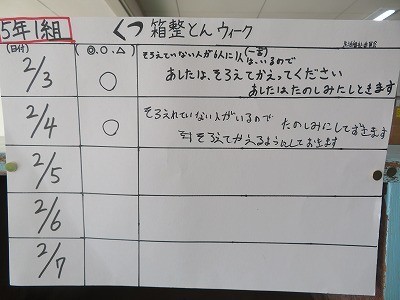 5年1組 くつ箱整とんウィーク
(日付) (◎.○.△) (一言)
2/3 ○ そろえていない人が6人に1人は、いるので
あしたは、そろえてかえってください
あしたはたのしみにしときます
2/4 ○ そろえれていない人がいるので たのしみにしております
そろえてかえるようにしております
2/5
2/6
2/7